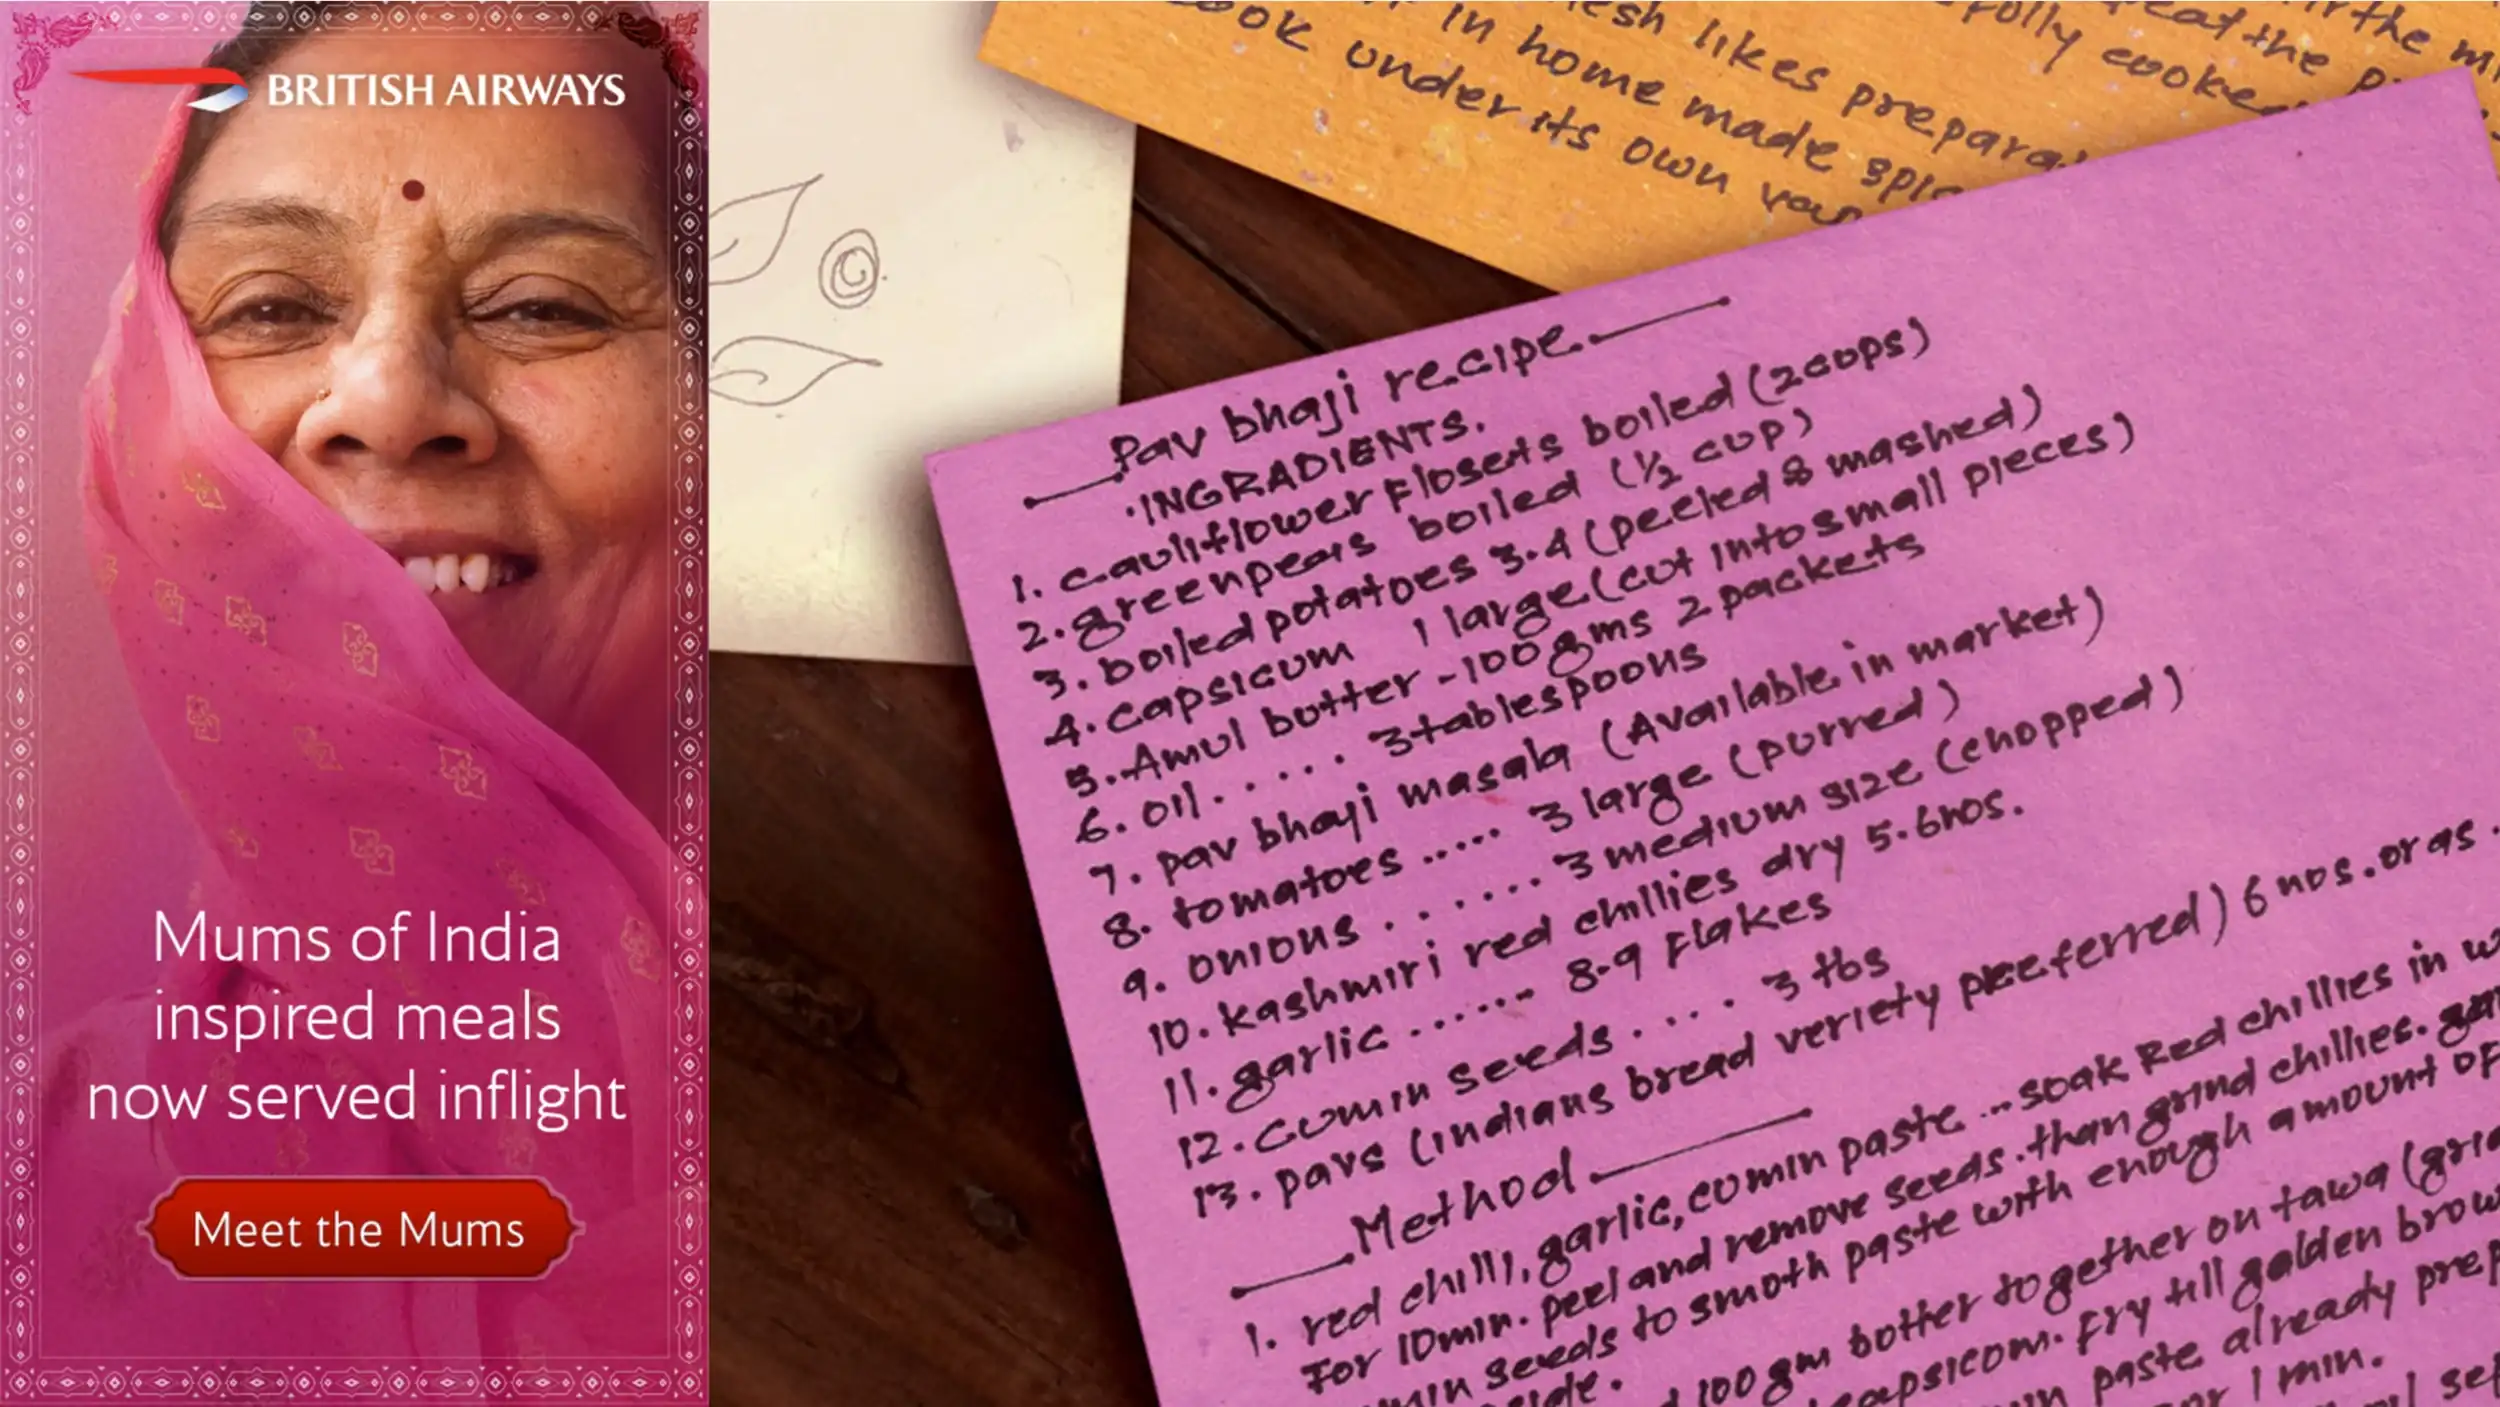 BRITISH AIRWAYS
Mums of India
inspired meals
now served inflight
Meet the Mums
likes prepara
fully cooked
eat the
in home made spic
ook under its own
Pav bhaji recipe
INGRADIENTS.
1. cauliflower Floserts boiled (2 cups)
2. greenpears boiled (1/2 cup)
3. boiled potatoes 3-4 (peeled & mashed)
4. capsicum 1 large (cut into small pieces)
5. Amul butter - 100 gms 2 packets
6. oil..... 3 tablespoons
7. pav bhaji masala (Available in market)
8. tomatoes ..... 3 large (purred)
9. onions ...... 3 medium size (chopped)
10. kashmiri red chillies dry 5-6 nos.
11. garlic ...... 8-9 Flakes
12. cumin seeds .... 3 tbs
13. pavs (indians bread veriety preeferred) 6 nos. or as .
Method
1. red chilli, garlic, cumin paste ... soak Red chillies in w
For 10 min. peel and remove seeds. than grind chillies. gar
min seeds to smoth paste with enough amount of
side.
100 gm botter together on tawa (gri
capsicom. Fry till galden brow
paste already prep
or 1 min.